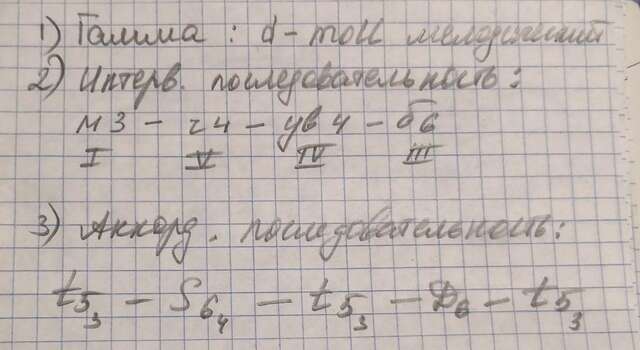 1) Гамма : d-moll мелодический
2) Интерв. последовательность:
м3 - ч4 - ув4 - б6
I V IV III
3) Аккорд. последовательность:
t53 - S64 - t53 - D6 - t53